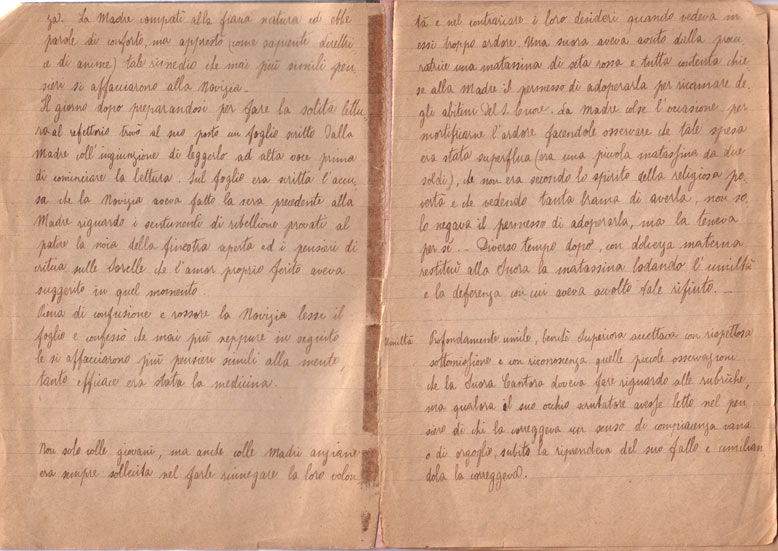 za). La Madre compatì alla fiacca natura ed ebbe
parole di conforto, ma apprestò (come sapiente direttri
ce di anime) tale rimedio che mai più simili pen
sieri si affacciarono alla Novizia.
Il giorno dopo preparandosi per fare la solita lettu
ra al refettorio trovò al suo posto un foglio scritto dalla
Madre coll'ingiunzione di leggerlo ad alta voce prima
di cominciare la lettura. Sul foglio era scritta l'accu
sa che la Novizia aveva fatto la sera precedente alla
Madre riguardo i sentimenti di ribellione provati al
patire la noia della finestra aperta ed i pensieri di
critica sulle Sorelle che l'amor proprio ferito aveva
suggerito in quel momento.
Piena di confusione e rossore la Novizia lesse il
foglio e confessò che mai più neppure in seguito
le si affacciarono più pensieri simili alla mente,
tanto efficace era stata la medicina.
Non solo colle giovani, ma anche colle Madri anziane
era sempre sollecita nel farle rinnegare la loro volon
tà e nel contrariare i loro desideri quando vedeva in
essi troppo ardore. Una suora aveva avuto dalla procu
ratrice una matassina di seta rossa e tutta contenta chie
se alla Madre il permesso di adoperarla per ricamare de
gli abitini del S. Cuore. La Madre colse l'occasione per
mortificarne l'ardore facendole osservare che tale spesa
era stata superflua (era una piccola matassina da due
soldi), che non era secondo lo spirito della religiosa po
vertà e che vedendo tanta brama di averla, non so
lo negava il permesso di adoperarla, ma la teneva
per sè. _ Diverso tempo dopo, con dolcezza materna
restituì alla Suora la matassina lodando l'umiltà
e la deferenza con cui aveva accolto tale rifiuto. _
Umiltà Profondamente umile, benchè Superiora accettava con rispettosa
sottomissione e con riconoscenza quelle piccole osservazioni
che la Suora Cantora doveva fare riguardo alle rubriche,
ma qualora il suo occhio scrutatore avesse letto nel pen
siero di chi la correggeva un senso di compiacenza vana
o di orgoglio, subito la riprendeva del suo fallo e umilian
dola la correggeva.